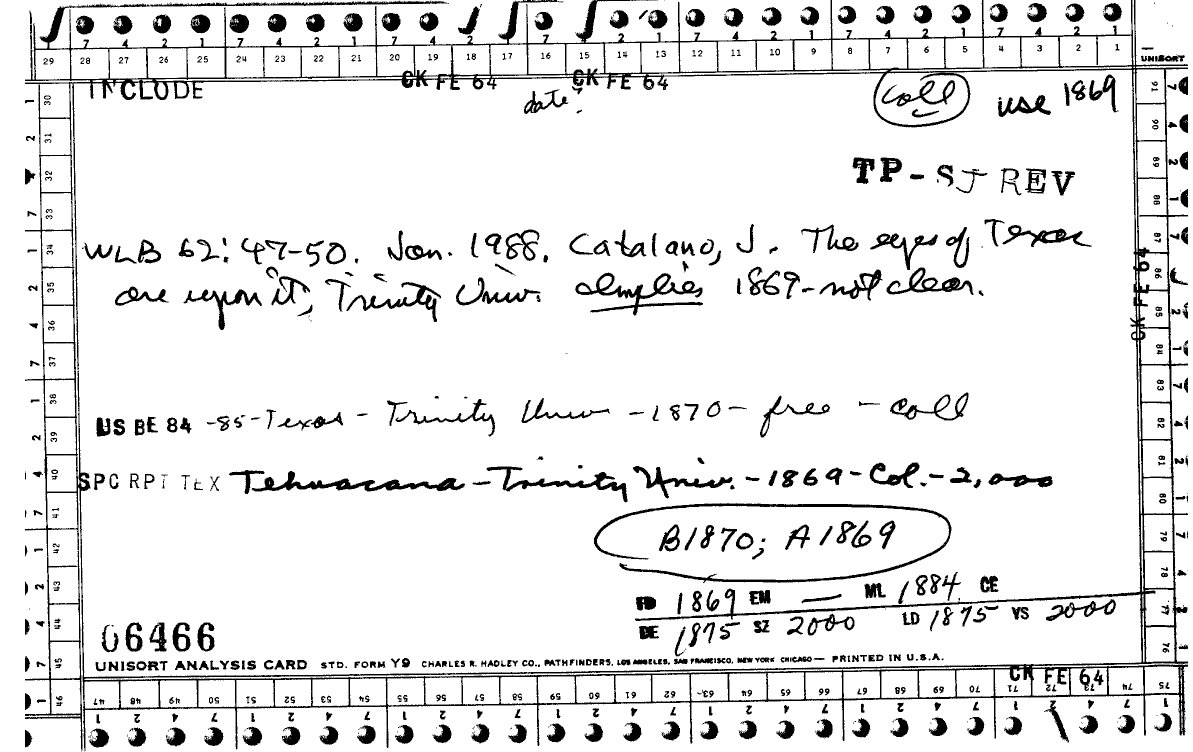 7 4 2 1 7 4 2 1 7 4 2 1 7 4 2 1 7 4 2 1 7 4 2 1
29 28 27 26 25 24 23 22 21 20 19 18 17 16 15 14 13 12 11 10 9 8 7 6 5 4 3 2 1
UNISORT
INCLUDE CK FE 64 CK FE 64
date? coll use 1869
TP - SJ REV
WLB 62: 47-50. Jan. 1988. Catalano, J. The eyes of Texas
are upon it, Trinity Univ. implies 1869 - not clear.
CK FE 64
US BE 84 -85- Texas - Trinity Univ - 1870 - free - coll
SPC RPT TEX Tehuacana - Trinity Univ. - 1869 - Col. - 2,000
B1870; A1869
FD 1869 EM — ML 1884 CE
DE 1875 SZ 2000 LD 1875 VS 2000
06466
UNISORT ANALYSIS CARD STD. FORM Y9 CHARLES R. HADLEY CO., PATHFINDERS, LOS ANGELES, SAN FRANCISCO, NEW YORK CHICAGO — PRINTED IN U.S.A.
CK FE 64
47 48 49 50 51 52 53 54 55 56 57 58 59 60 61 62 63 64 65 66 67 68 69 70 71 72 73 74 75